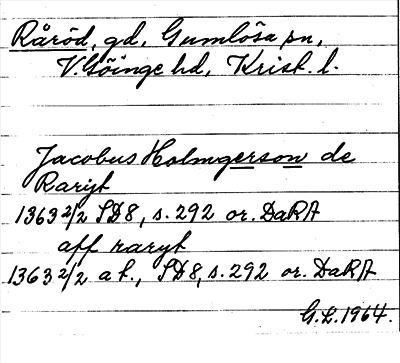 Råröd, gd, Gumlösa sn,
V. Göinge hd, Krist. l.
Jacobus Holmgerson de
Raryt
1363 2/2 SD8, s. 292 or. DaRA
aff raryt
1363 2/2 a f., SD8, s. 292 or. DaRA
G.L. 1964.